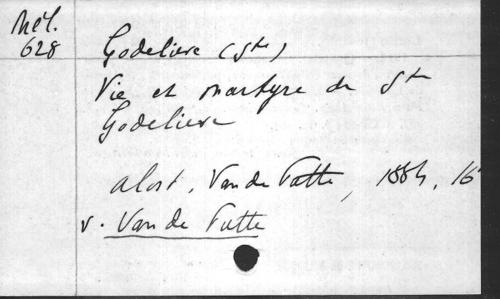 Mél.
628
Godelieve (Ste)
Vie et martyre de Ste
Godelieve
Alost, Van de Putte, 1884, 16°
v. Van de Putte